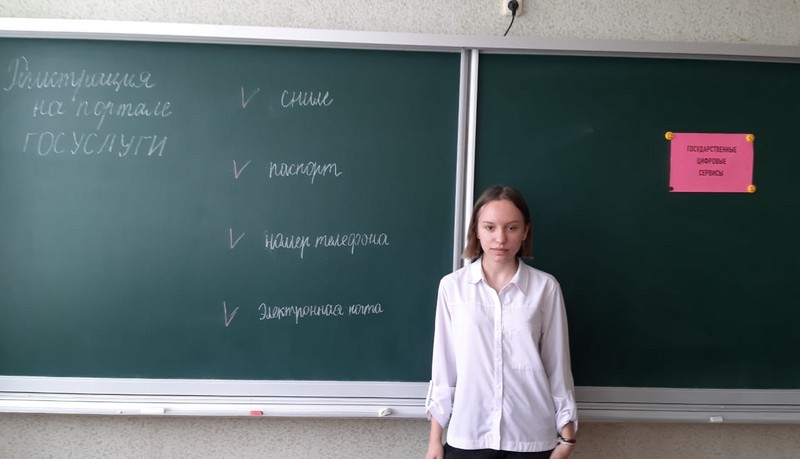 Регистрация
на портале
ГОСУСЛУГИ
снилс
паспорт
номер телефона
Электронная почта
ГОСУДАРСТВЕННЫЕ
ЦИФРОВЫЕ
СЕРВИСЫ